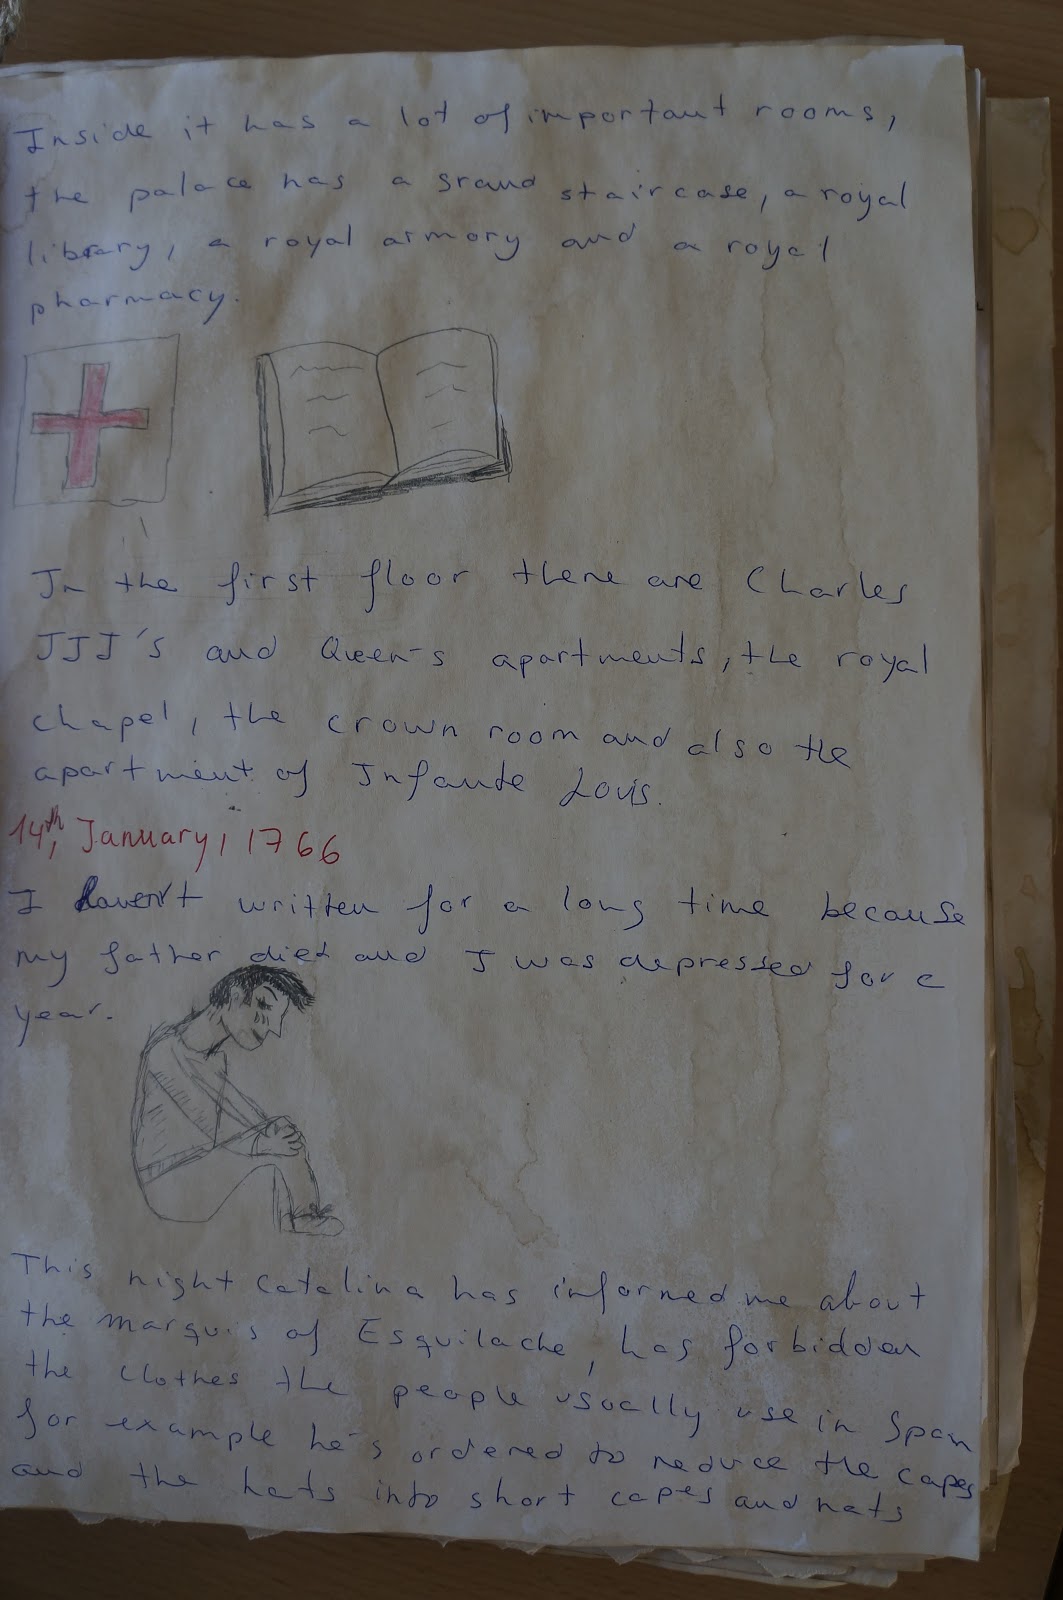 Inside it has a lot of important rooms,
the palace has a grand staircase, a royal
library, a royal armory and a royal
pharmacy.
In the first floor there are Charles
III's and Queen's apartments, the royal
chapel, the crown room and also the
apartment of Infante Louis.
14th, January, 1766
I haven't written for a long time because
my father diet and I was depressed for a
year.
This night Catalina has informed me about
the marquis of Esquilache, has forbidden
the clothes the people usually use in Span
for example he's ordered to reduce the capes
and the hats into short capes and hats